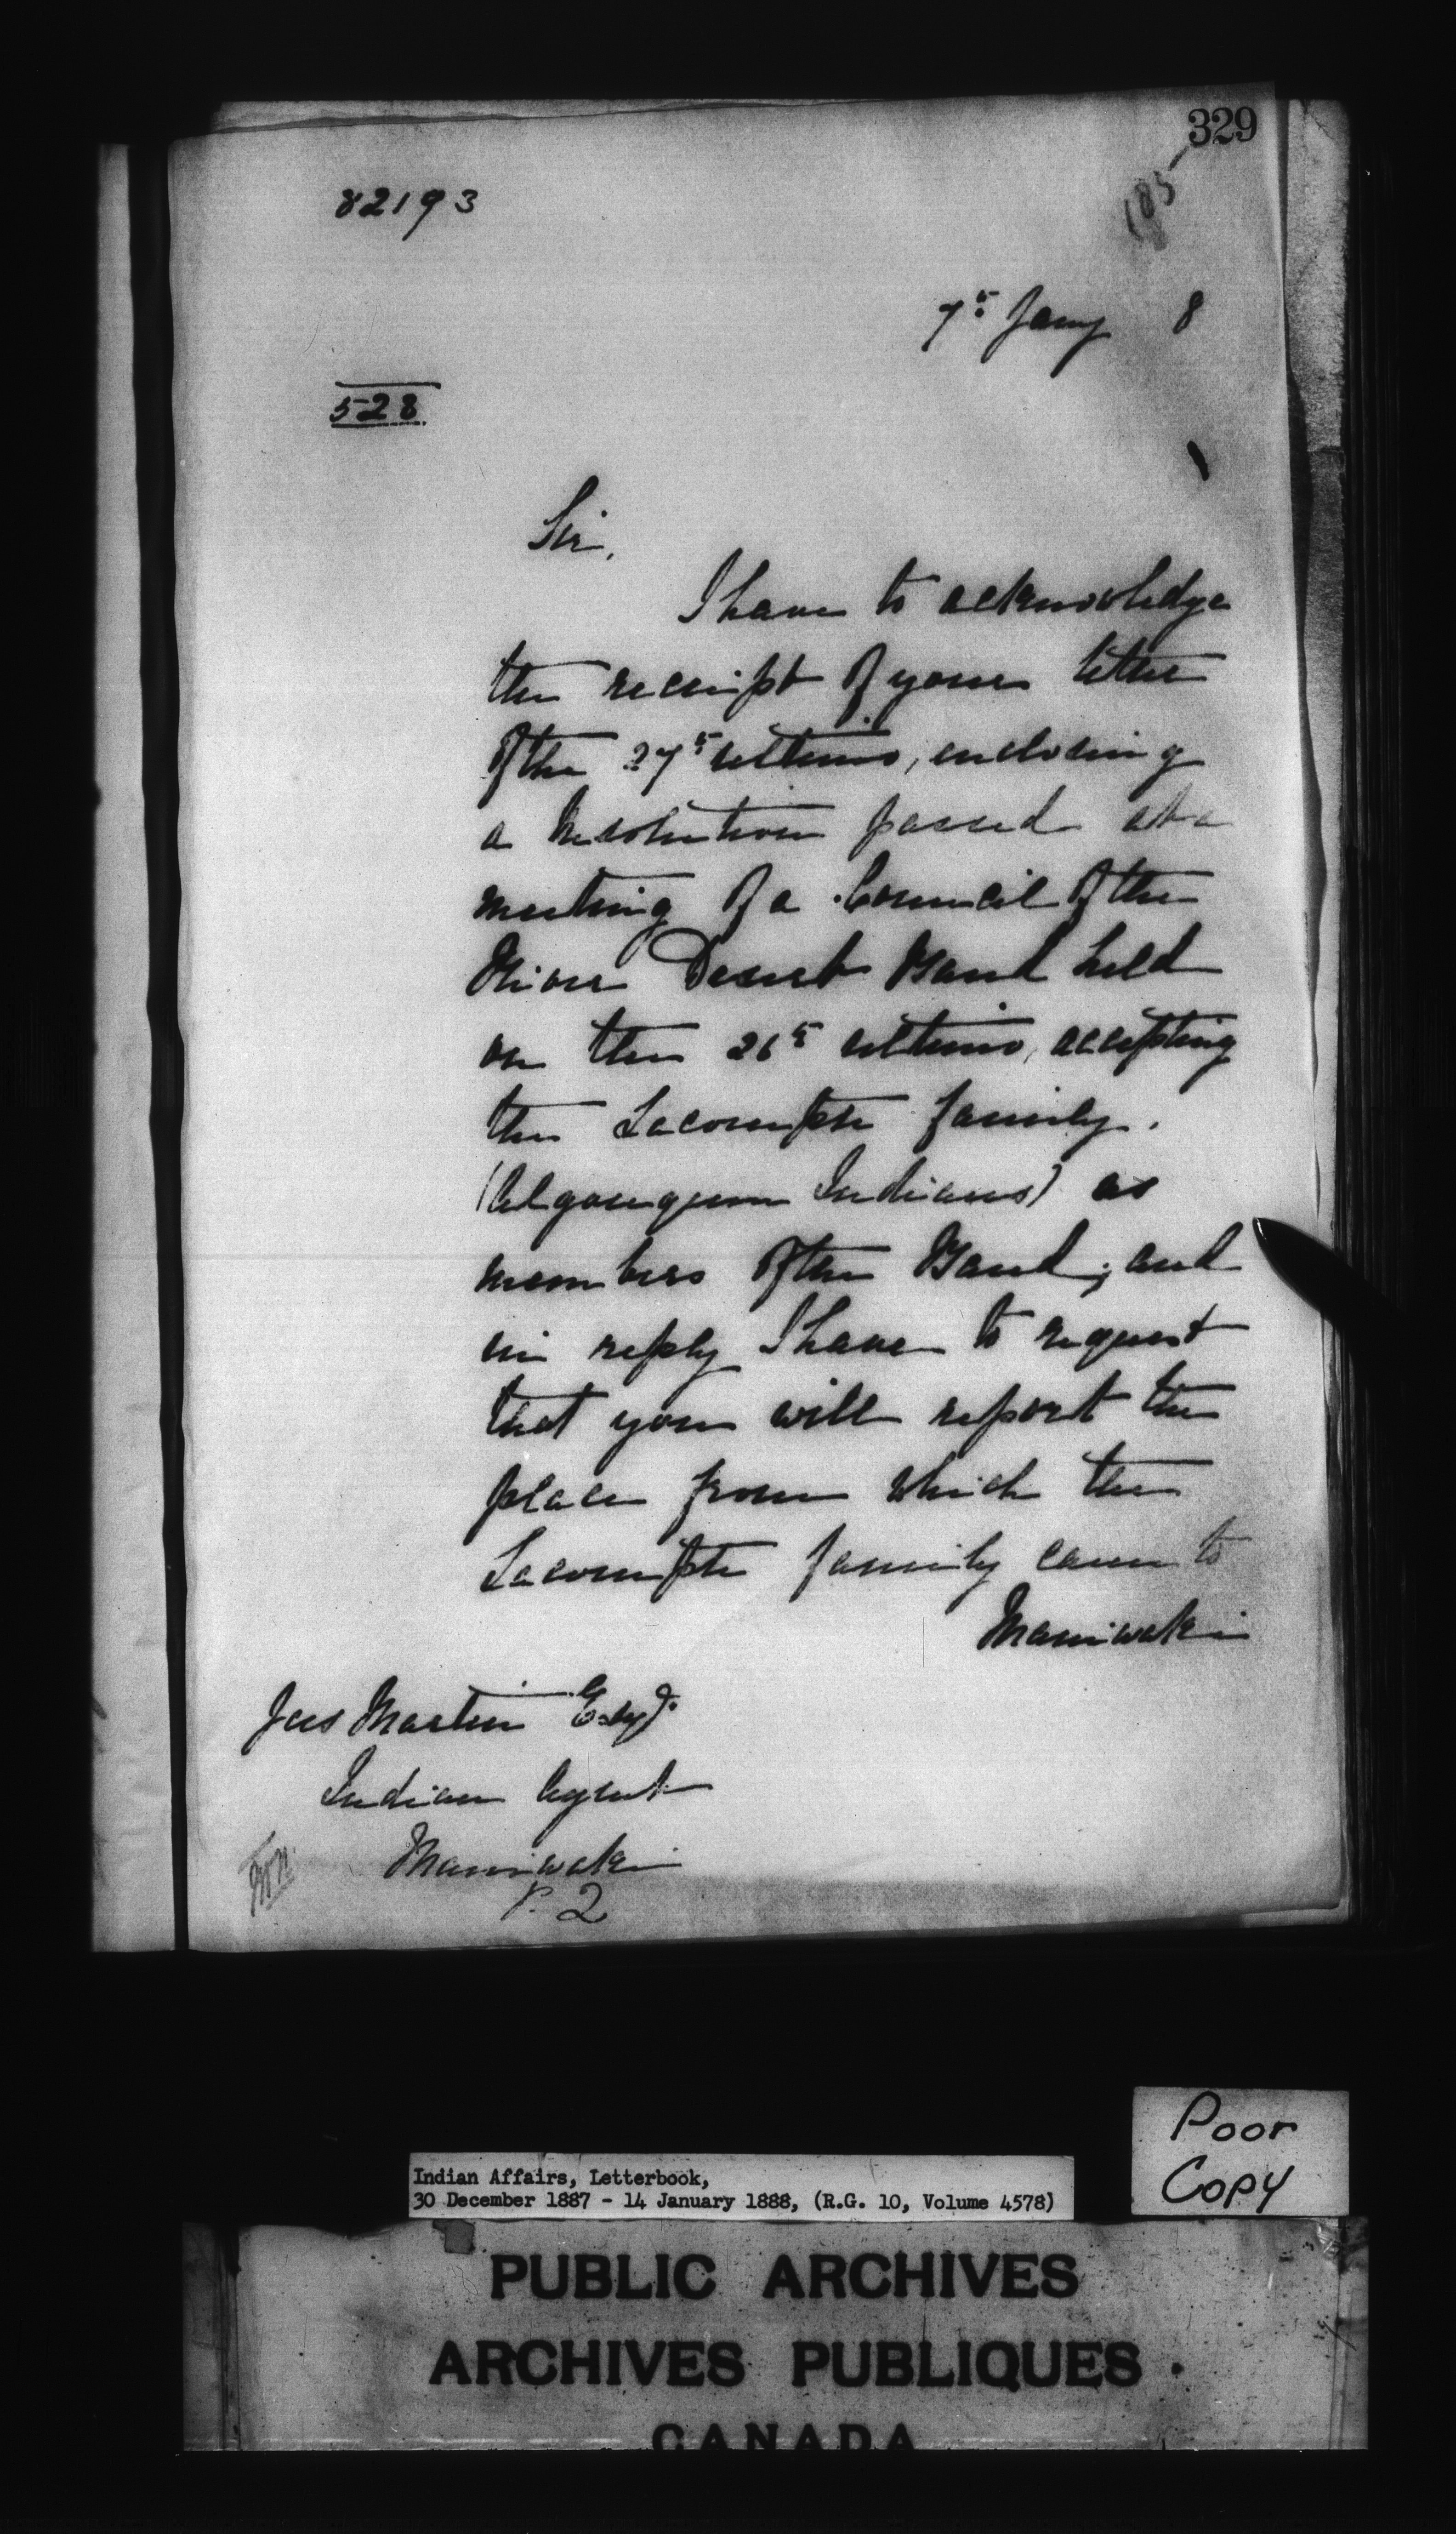 329
185
82193
7th Jany 8
528
Sir,
I have to acknowledge
the receipt of your letter
of the 27th ultimo, enclosing
a Resolution passed at a
meeting of a Council of the
River Desert Band held
on the 26th ultimo, accepting
the Lacompte family.
(Algonquin Indians) as
members of the Band; and
in reply I have to request
that you will report the
place from which the
Lacompte family came to
Maniwaki
Jas Martin Esqr.
Indian Agent
Maniwaki
P. 2
Poor
Copy
Indian Affairs, Letterbook,
30 December 1887 - 14 January 1888, (R.G. 10, Volume 4578)
PUBLIC ARCHIVES
ARCHIVES PUBLIQUES
CANADA